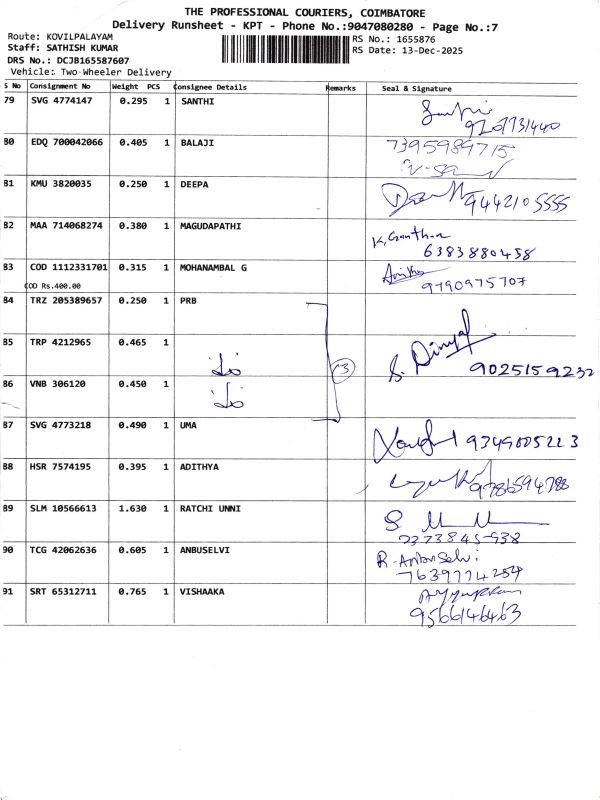 THE PROFESSIONAL COURIERS, COIMBATORE
Delivery Runsheet - KPT - Phone No.:9047080280 - Page No.:7
Route: KOVILPALAYAM
RS No.: 1655876
Staff: SATHISH KUMAR
RS Date: 13-Dec-2025
DRS No.: DCJB165587607
Vehicle: Two-Wheeler Delivery
S No Consignment No Weight PCS Consignee Details Remarks Seal & Signature
79 SVG 4774147 0.295 1 SANTHI
80 EDQ 700042066 0.405 1 BALAJI 7395989715
81 KMU 3820035 0.250 1 DEEPA 9442105555
82 MAA 714068274 0.380 1 MAGUDAPATHI K. Ganthan
6383880458
83 COD 1112331701 0.315 1 MOHANAMBAL G
COD Rs.400.00 9790975707
84 TRZ 205389657 0.250 1 PRB
85 TRP 4212965 0.465 1
3 9025159232
86 VNB 306120 0.450 1
87 SVG 4773218 0.490 1 UMA
9349005223
88 HSR 7574195 0.395 1 ADITHYA
9786594788
89 SLM 10566613 1.630 1 RATCHI UNNI
7373845938
90 TCG 42062636 0.605 1 ANBUSELVI R. Anbu Selvi
7639774254
91 SRT 65312711 0.765 1 VISHAAKA
9566146463